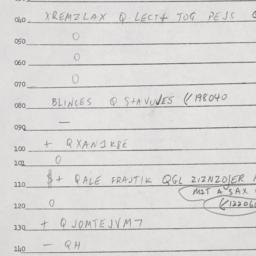 040 XREMZLAX Q LECT4 TOG PEJS
050 O
060 O
070 O
080 BLINCES Q STAVUVES (/198040
090 —
100 + QXANJK8E
110 O
$+ QALE FRAJTIK QGL ZIZNZOJER
MZT A SAX
120 O (/12206
130 + QJOMTEJVM7
140 − QH